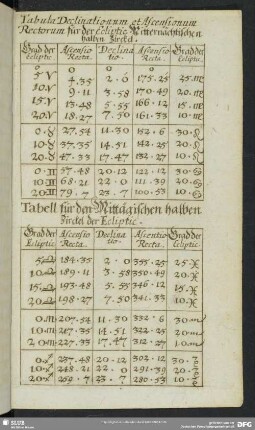 Tabula Declinationum et Ascensionum
Rectorum für der Ecliptic Mitternächtischen
halben Zirckel.
Grad der Ascensio Declina Ascensio Grad der
Ecliptic. Recta. tio. Recta. Ecliptic.
5 ♈ 4.35 2.0 175.25 25.♍
10 ♈ 9.11 3.58 170.49 20.♍
15 ♈ 13.48 5.55 166.12 15.♍
20 ♈ 18.27 7.50 161.33 10.♍
0.♉ 27.54 11.30 152.6 30.♌
10 ♉ 37.35 14.51 142.25 20.♌
20 ♉ 47.33 17.47 132.27 10.♌
0.♊ 57.48 20.12 122.12 30.♋
10 ♊ 68.21 22.0 111.39 20.♋
20 ♊ 79.7 23.7 100.53 10.♋
Tabell für den Mittägischen halben
Zirckel der Ecliptic.
Grad der Ascensio Declina Ascensio Grad der
Ecliptic Recta. tio. Recta. Ecliptic.
5 ♎ 184.35 2.0 355.25 25.♓
10 ♎ 189.11 3.58 350.49 20.♓
15 ♎ 193.48 5.55 346.12 15.♓
20 ♎ 198.27 7.50 341.33 10.♓
0.♏ 207.54 11.30 332.6 30.♒
10 ♏ 217.35 14.51 322.25 20.♒
20 ♏ 227.33 17.47 312.27 10.♒
0.♐ 237.48 20.12 302.12 30.♑
10 ♐ 248.21 22.0 291.39 20.♑
20 ♐ 259.7 23.7 280.53 10.♑
SLUB
DFG